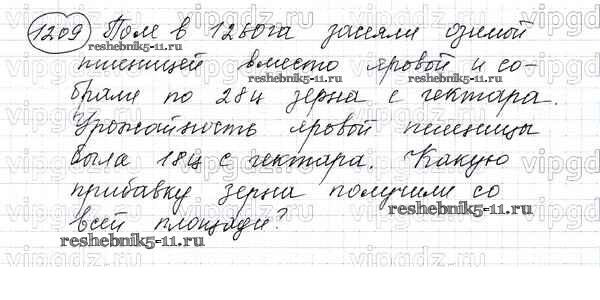 1209 Поле в 1260га засеяли озимой
reshebnik5-11.ru
пшеницей вместо яровой и со-
reshebnik5-11.ru
брали по 28ц зерна с гектара.
Урожайность яровой пшеницы
была 18ц с гектара. Какую
прибавку зерна получили со
reshebnik5-11.ru
всей площади?
reshebnik5-11.ru